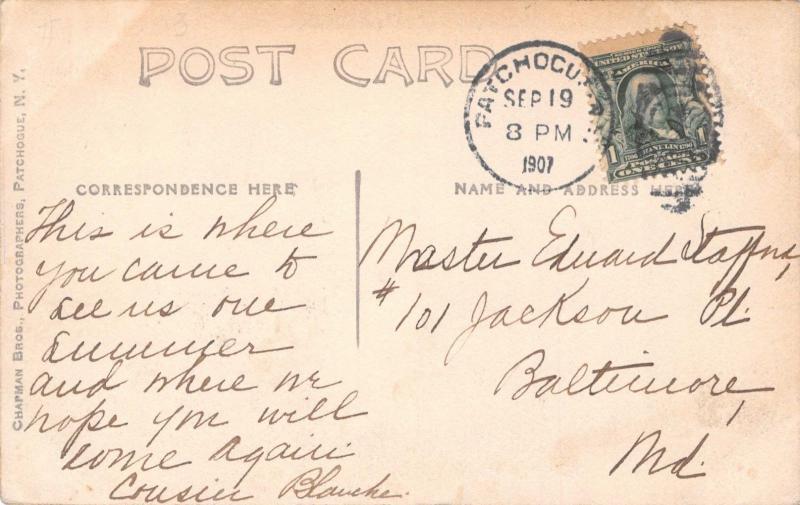 POST CARD
PATCHOGUE, N.Y.
SEP 19
8 PM
1907
UNITED STATES OF
AMERICA
FRANKLIN
1 POSTAGE 1
ONE CENT
CORRESPONDENCE HERE
NAME AND ADDRESS HERE
CHAPMAN BROS., PHOTOGRAPHERS, PATCHOGUE, N. Y.
This is where
you came to
see us one
summer
and where we
hope you will
come again.
Cousin Blanche.
Master Edward Stafford,
#101 Jackson Pl.
Baltimore,
Md.